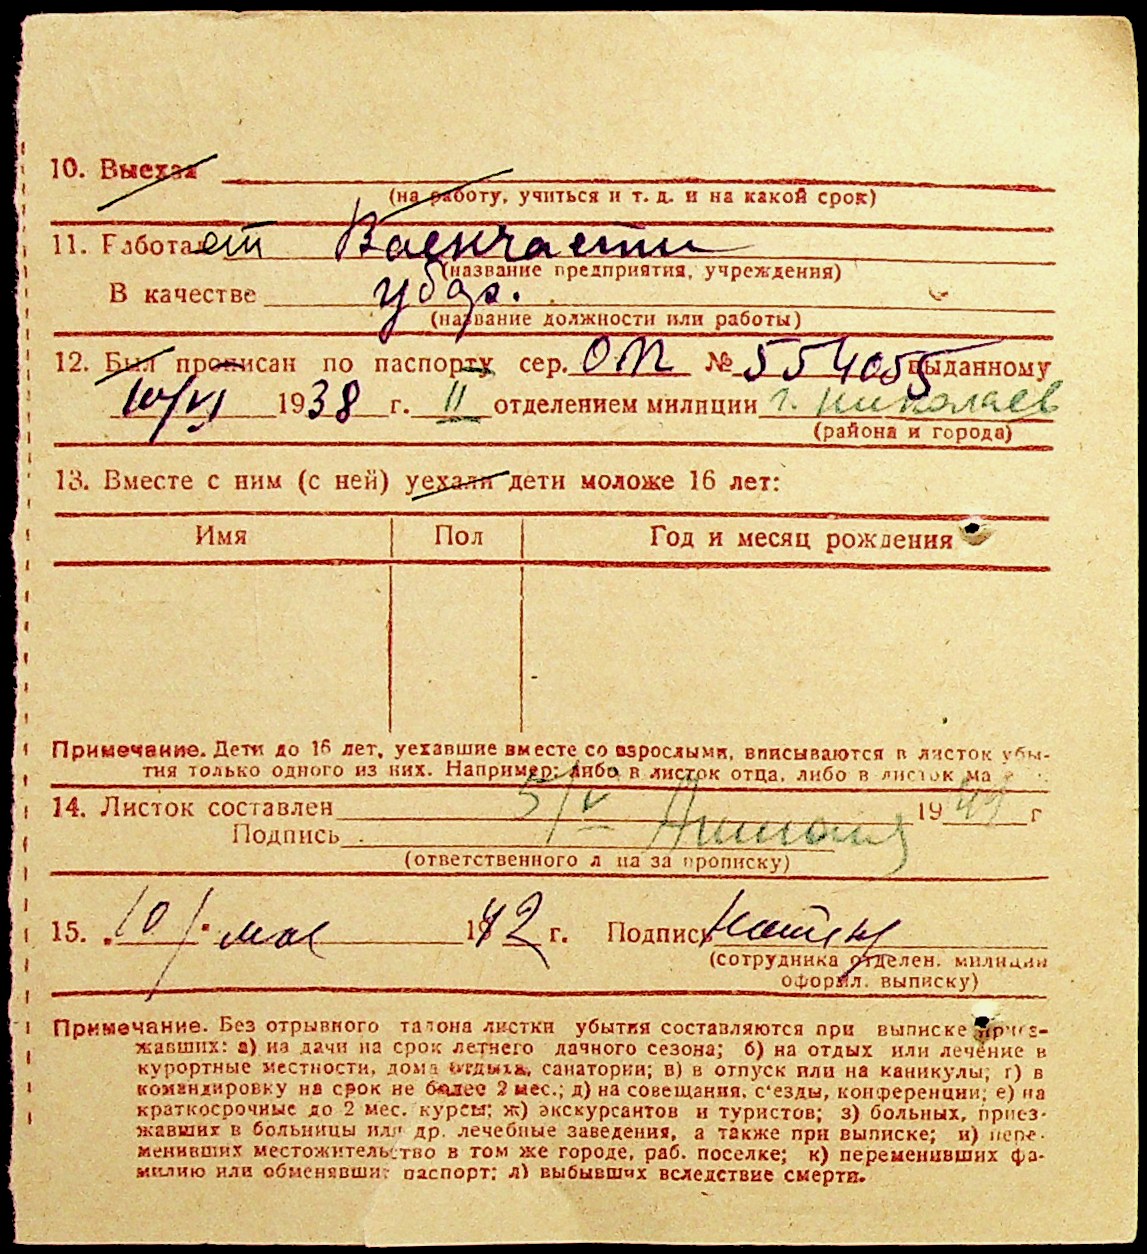 10. Выехал
(на работу, учиться и т. д. и на какой срок)
11. Работает Военчасти
(название предприятия, учреждения)
В качестве убор.
(название должности или работы)
12. Был прописан по паспорту сер. ОП № 554055 выданному
10/VI 1938 г. II отделением милиции г. Николаев
(района и города)
13. Вместе с ним (с ней) уехали дети моложе 16 лет:
Имя Пол Год и месяц рождения
Примечание. Дети до 16 лет, уехавшие вместе со взрослыми, вписываются в листок убы-
тия только одного из них. Например: либо в листок отца, либо в листок ма
14. Листок составлен 5/V 19 г
Подпись
(ответственного л ца за прописку)
15. "10" мая 1942 г. Подпись
(сотрудника отделен. милиции
оформл. выписку)
Примечание. Без отрывного талона листки убытия составляются при выписке приез-
жавших: а) на дачи на срок летнего дачного сезона; б) на отдых или лечение в
курортные местности, дома отдыха, санатории; в) в отпуск или на каникулы; г) в
командировку на срок не более 2 мес.; д) на совещания, с'езды, конференции; е) на
краткосрочные до 2 мес. курсы; ж) экскурсантов и туристов; з) больных, приез-
жавших в больницы или др. лечебные заведения, а также при выписке; и) пере-
менивших местожительство в том же городе, раб. поселке; к) переменивших фа-
милию или обменявших паспорт; л) выбывших вследствие смерти.